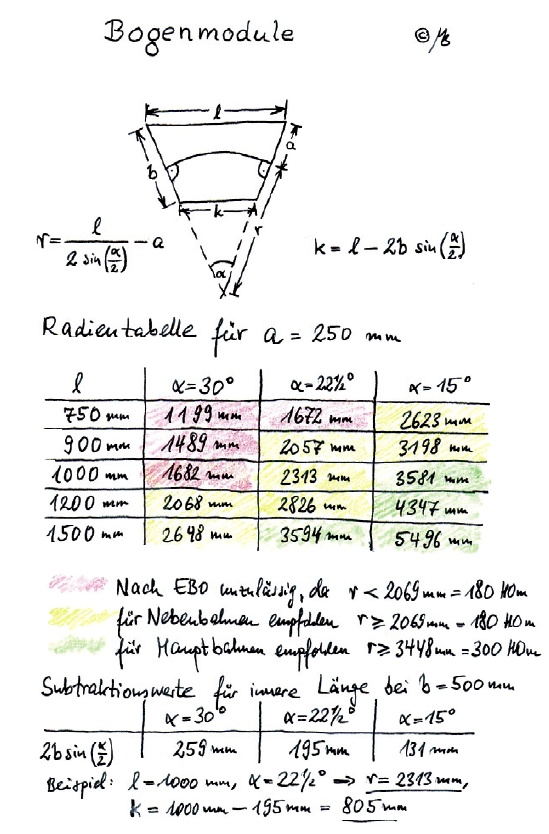 Bogenmodule ©
l
b a
k r
α
r = l / (2 sin(α/2)) - a k = l - 2b sin(α/2)
Radientabelle für a = 250 mm
l α=30° α=22½° α=15°
750 mm 1199 mm 1672 mm 2623 mm
900 mm 1489 mm 2057 mm 3198 mm
1000 mm 1682 mm 2313 mm 3581 mm
1200 mm 2068 mm 2826 mm 4347 mm
1500 mm 2648 mm 3594 mm 5496 mm
Nach EBO unzulässig, da r < 2069 mm = 180 H0m
für Nebenbahnen empfohlen r ≥ 2069 mm = 180 H0m
für Hauptbahnen empfohlen r ≥ 3448 mm = 300 H0m
Subtraktionswerte für innere Länge bei b = 500 mm
α=30° α=22½° α=15°
2b sin(α/2) 259 mm 195 mm 131 mm
Beispiel: l = 1000 mm, α = 22½° ⇒ r = 2313 mm,
k = 1000 mm - 195 mm = 805 mm